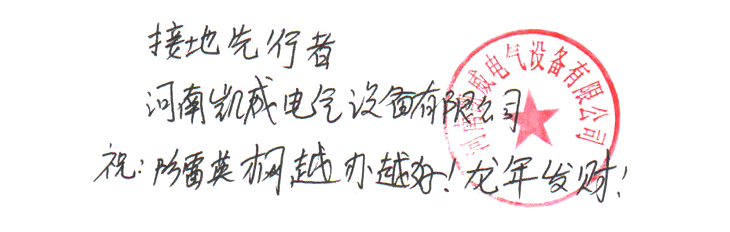 接地先行者
河南凯威电气设备有限公司
祝:防雷英网越办越好!龙年发财!
河南凯威电气设备有限公司